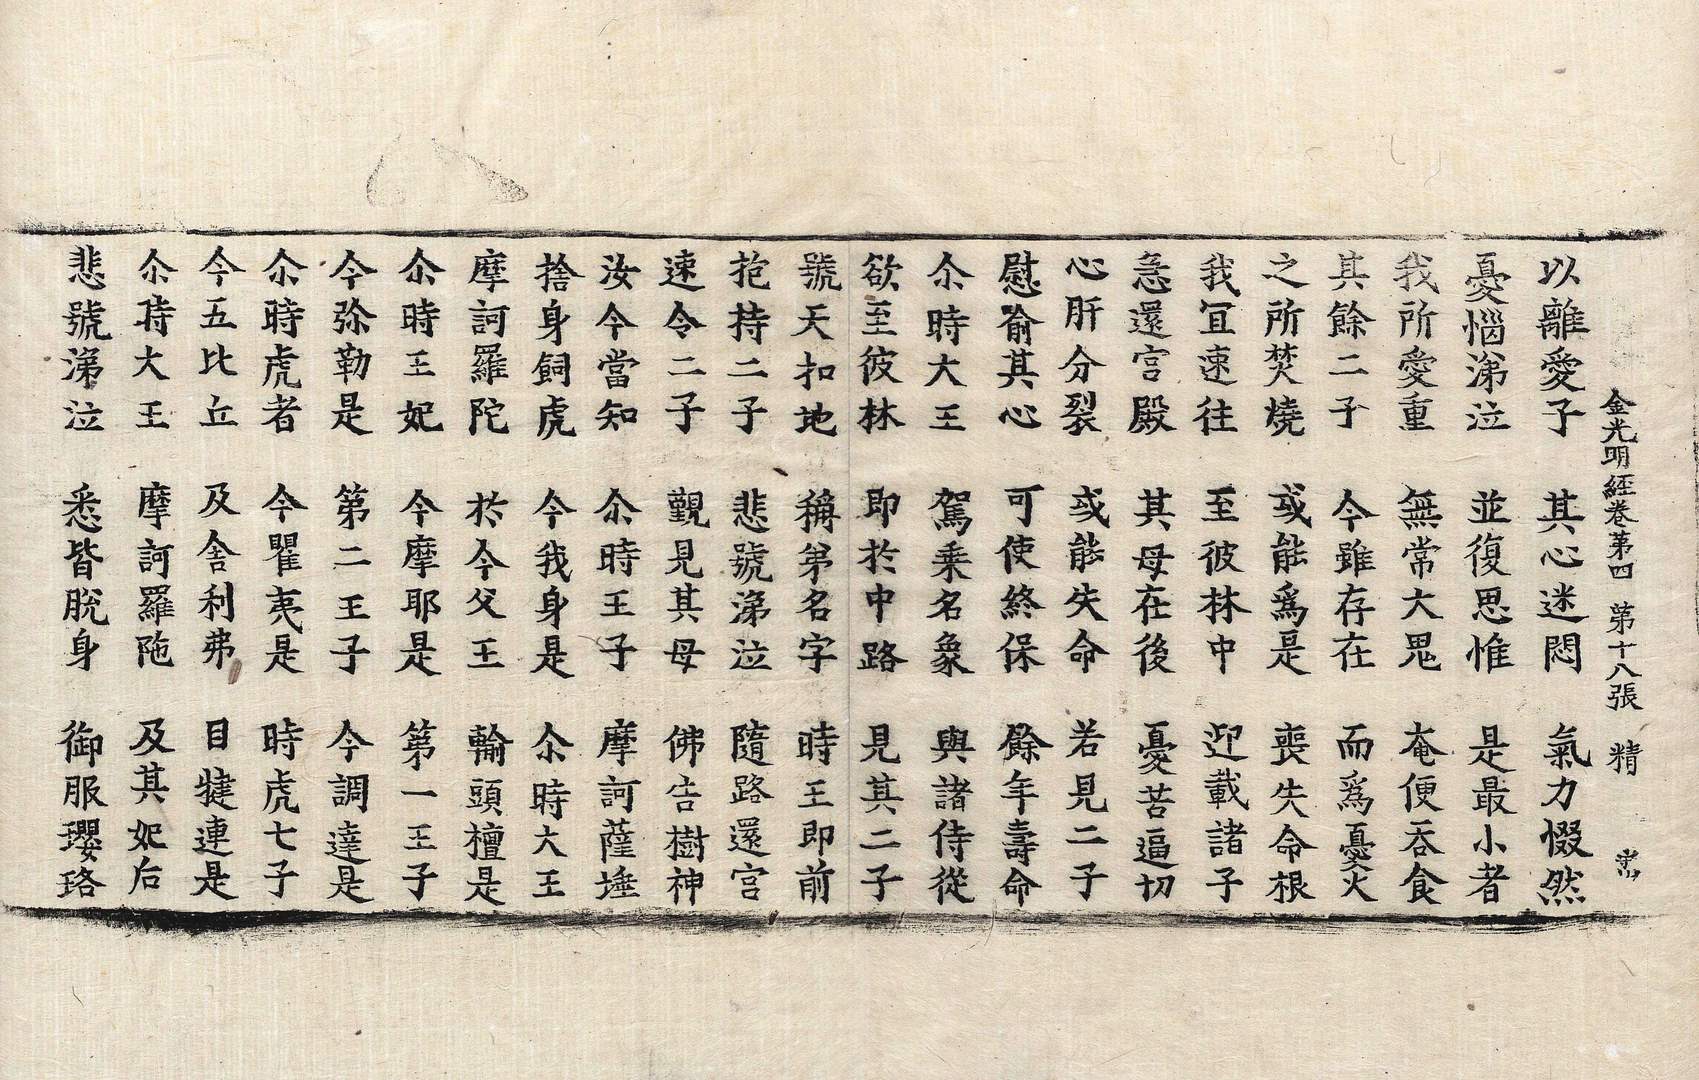 金光明經卷第四 第十八張 精
以離愛子 其心迷悶 氣力惙然
憂惱涕泣 並復思惟 是最小者
我所愛重 無常大鬼 奄便吞食
其餘二子 今雖存在 而爲憂火
之所焚燒 或能爲是 喪失命根
我宜速往 至彼林中 迎載諸子
急還宮殿 其母在後 憂苦逼切
心肝分裂 或能失命 若見二子
慰喻其心 可使終保 餘年壽命
尒時大王 駕乘名象 與諸侍從
欲至彼林 即於中路 見其二子
號天扣地 稱弟名字 時王即前
抱持二子 悲號涕泣 隨路還宮
速令二子 覲見其母 佛告樹神
汝今當知 尒時王子 摩訶薩埵
捨身飼虎 今我身是 尒時大王
摩訶羅陀 於今父王 輸頭檀是
尒時王妃 今摩耶是 第一王子
今弥勒是 第二王子 今調達是
尒時虎者 今瞿夷是 時虎七子
今五比丘 及舍利弗 目犍連是
尒時大王 摩訶羅陁 及其妃后
悲號涕泣 悉皆脫身 御服瓔珞